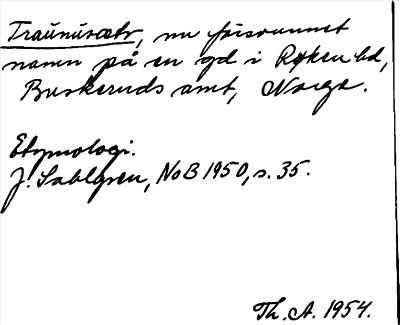 Traunúsætr, nu försvunnet
namn på en gd i Røken hd,
Buskeruds amt, Norge.
Etymologi.
J. Sahlgren, NoB 1950, s. 35.
Th. A. 1954.